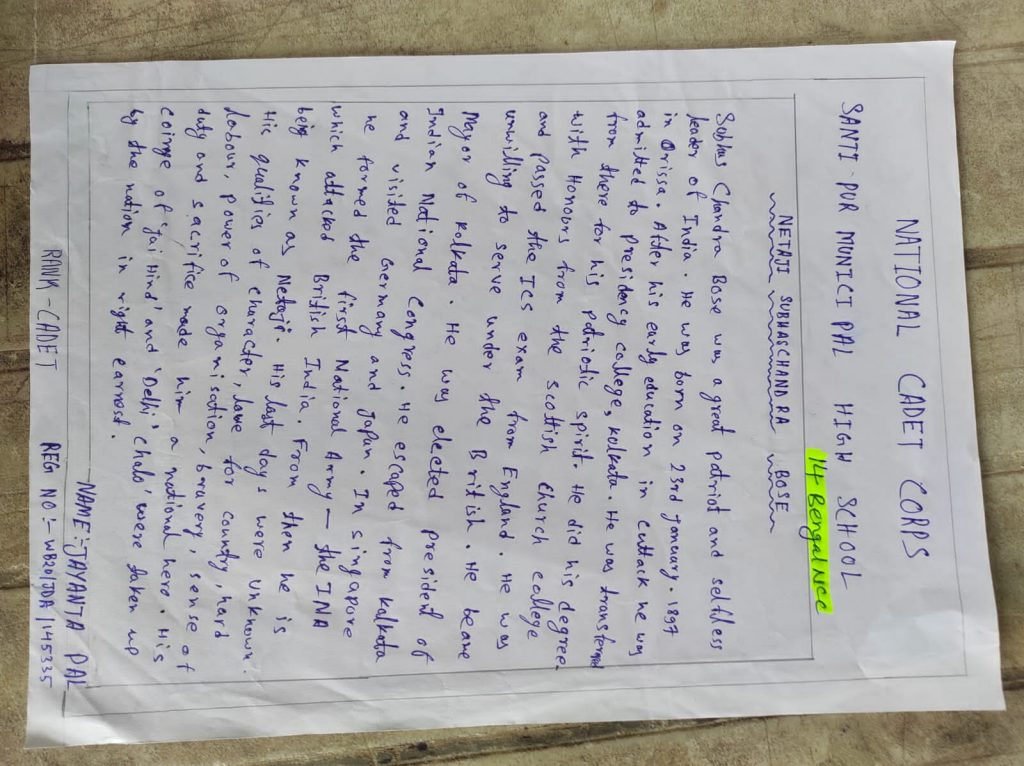 NATIONAL CADET CORPS
SANTI-PUR MUNICIPAL HIGH SCHOOL
14 Bengal NCC
NETAJI SUBHASCHANDRA BOSE
Subhas Chandra Bose was a great patriot and selfless
leader of India. He was born on 23rd January. 1897
in Orissa. After his early education in cuttack he was
admitted to Presidency college, Kolkata. He was transferred
from there for his patriotic spirit. He did his degree
with Honours from the Scottish Church College
and passed the ICS exam from England. He was
unwilling to serve under the British. He became
Mayor of Kolkata. He was elected president of
Indian National Congress. He escaped from Kolkata
and visited Germany and Japan. In singapore
he formed the first National Army — the INA
which attacked British India. From then he is
being known as Netaji. His last days were unknown.
His qualities of character, love for country, hard
labour, power of organisation, bravery, sense of
duty and sacrifice made him a national hero. His
coinge of 'jai Hind' and 'Delhi Chalo' were taken up
by the nation in right earrest.
NAME:-JAYANTA PAL
RANK-CADET REG NO:-WB20/JDA/145335